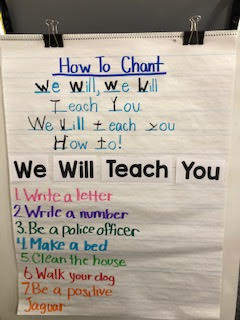 How To Chant
We Will, We Will
Teach You.
We Will teach you
How to!
We Will Teach You
1. Write a letter
2. Write a number
3. Be a police officer
4. Make a bed
5. Clean the house
6. Walk your dog
7. Be a positive
Jaguar